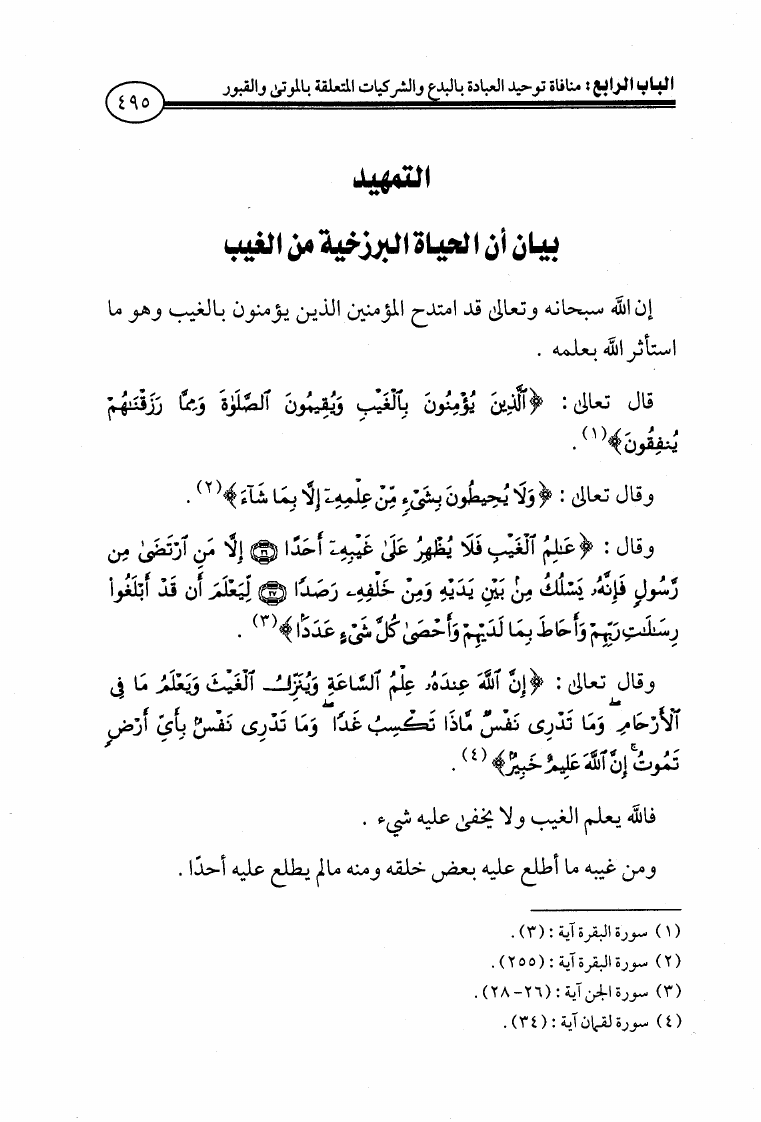 الباب الرابع : منافاة توحيد العبادة بالبدع والشركيات المتعلقة بالموتىٰ والقبور
٤٩٥
التمهيد
بيان أن الحياة البرزخية من الغيب
إن الله سبحانه وتعالىٰ قد امتدح المؤمنين الذين يؤمنون بالغيب وهو ما
استأثر الله بعلمه .
قال تعالىٰ : ﴿ٱلَّذِينَ يُؤْمِنُونَ بِٱلْغَيْبِ وَيُقِيمُونَ ٱلصَّلَوٰةَ وَمِمَّا رَزَقْنَٰهُمْ
يُنفِقُونَ﴾(١) .
وقال تعالىٰ : ﴿وَلَا يُحِيطُونَ بِشَىْءٍ مِّنْ عِلْمِهِۦٓ إِلَّا بِمَا شَآءَ﴾(٢) .
وقال : ﴿عَٰلِمُ ٱلْغَيْبِ فَلَا يُظْهِرُ عَلَىٰ غَيْبِهِۦٓ أَحَدًا ۝٢٦ إِلَّا مَنِ ٱرْتَضَىٰ مِن
رَّسُولٍ فَإِنَّهُۥ يَسْلُكُ مِنۢ بَيْنِ يَدَيْهِ وَمِنْ خَلْفِهِۦ رَصَدًا ۝٢٧ لِّيَعْلَمَ أَن قَدْ أَبْلَغُوا۟
رِسَٰلَٰتِ رَبِّهِمْ وَأَحَاطَ بِمَا لَدَيْهِمْ وَأَحْصَىٰ كُلَّ شَىْءٍ عَدَدًۢا﴾(٣) .
وقال تعالىٰ : ﴿إِنَّ ٱللَّهَ عِندَهُۥ عِلْمُ ٱلسَّاعَةِ وَيُنَزِّلُ ٱلْغَيْثَ وَيَعْلَمُ مَا فِى
ٱلْأَرْحَامِ ۖ وَمَا تَدْرِى نَفْسٌ مَّاذَا تَكْسِبُ غَدًا ۖ وَمَا تَدْرِى نَفْسٌۢ بِأَىِّ أَرْضٍ
تَمُوتُ ۚ إِنَّ ٱللَّهَ عَلِيمٌ خَبِيرٌ﴾(٤) .
فالله يعلم الغيب ولا يخفىٰ عليه شيء .
ومن غيبه ما أطلع عليه بعض خلقه ومنه مالم يطلع عليه أحدًا .
(١) سورة البقرة آية : (٣) .
(٢) سورة البقرة آية : (٢٥٥) .
(٣) سورة الجن آية : (٢٦-٢٨) .
(٤) سورة لقمان آية : (٣٤) .